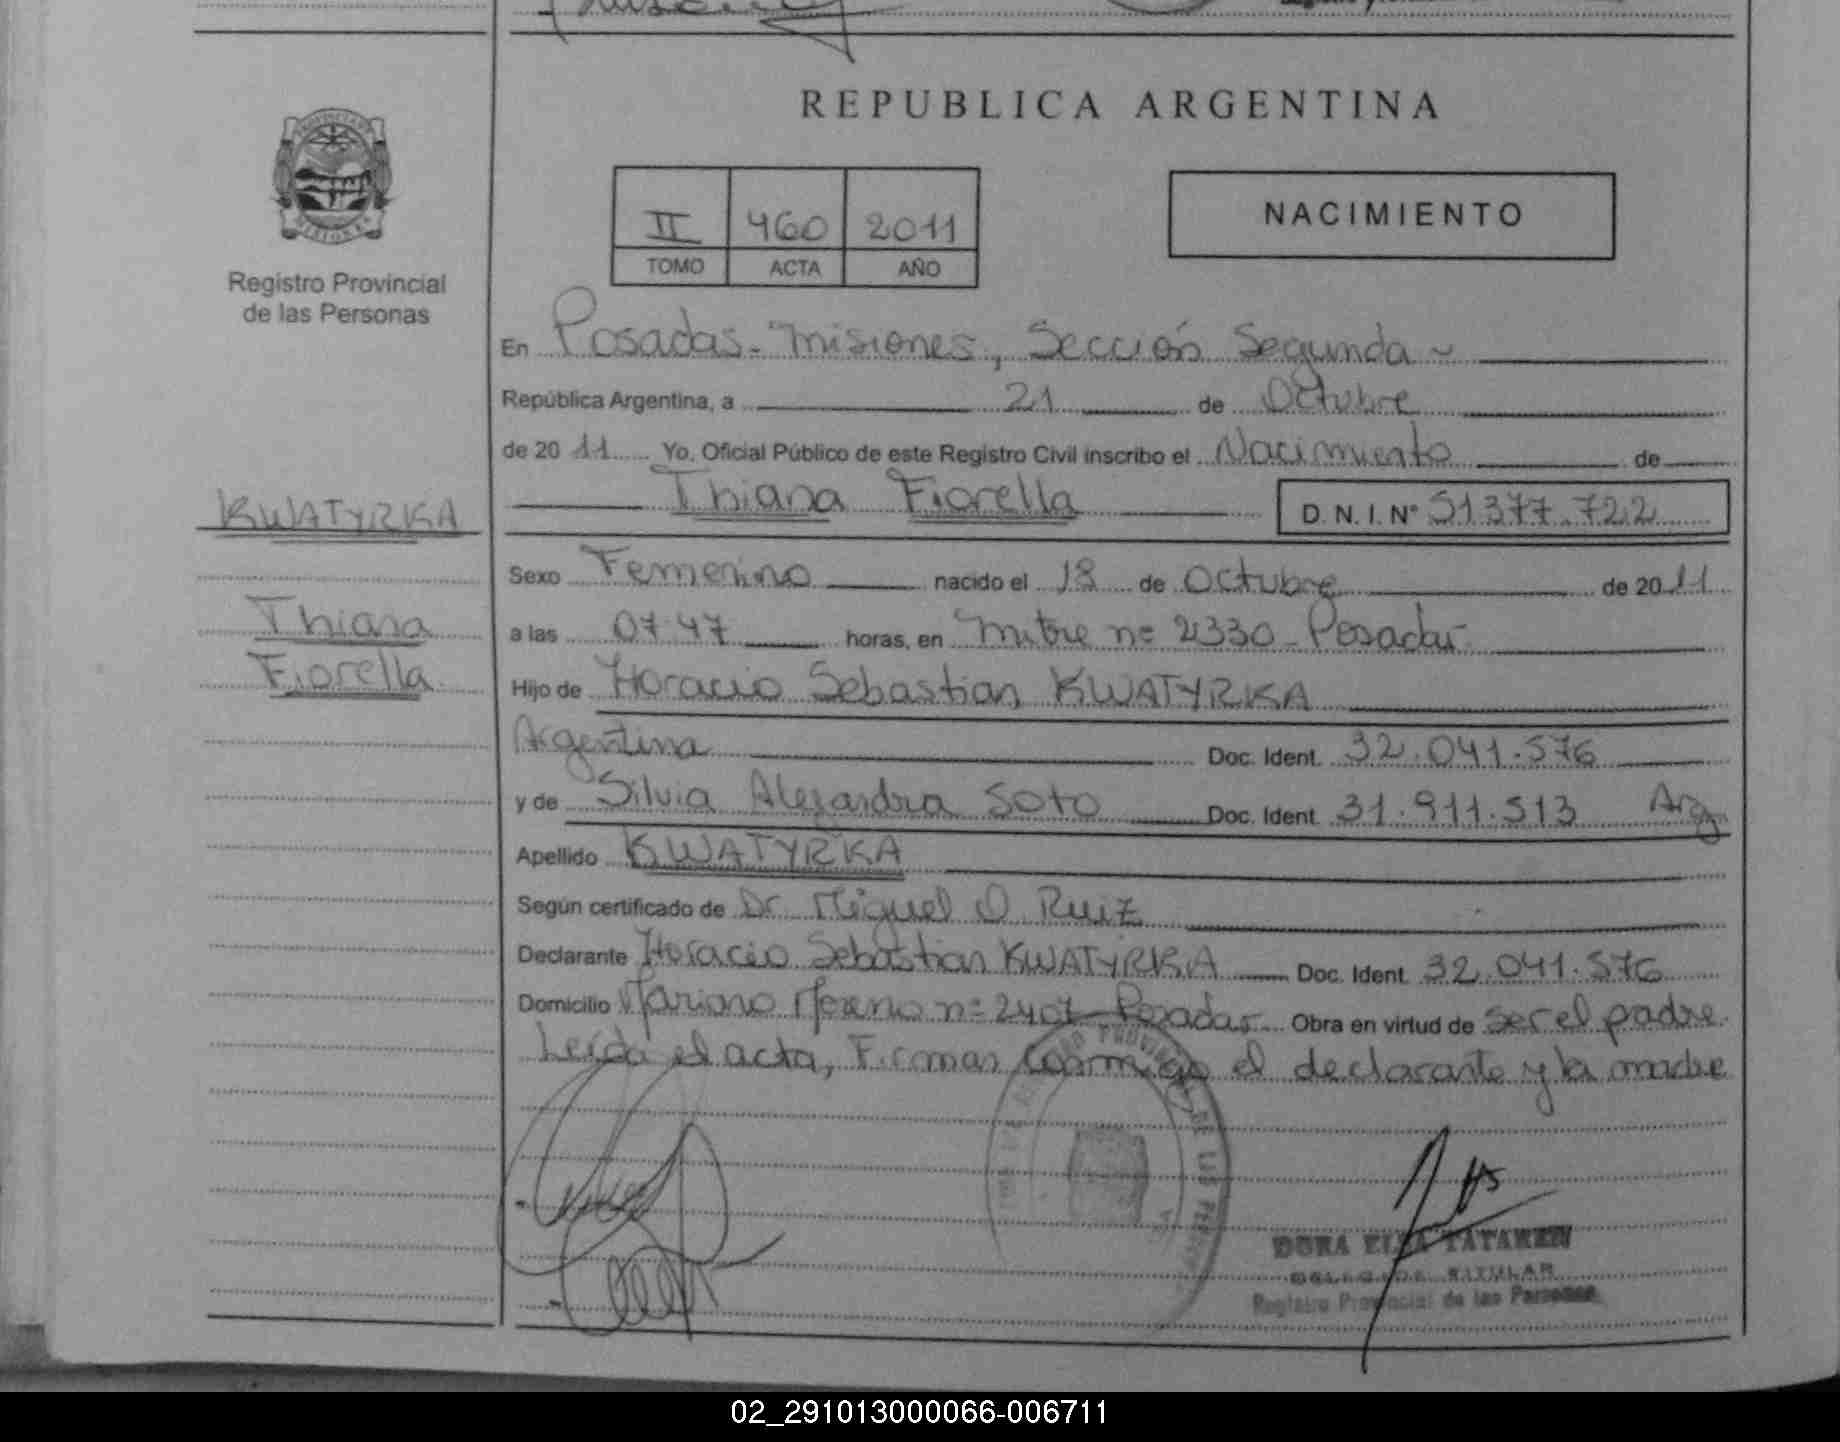 REPUBLICA ARGENTINA
Registro Provincial
de las Personas
II 460 2011
TOMO ACTA AÑO
NACIMIENTO
En Posadas - Misiones, Sección Segunda
República Argentina, a 21 de Octubre
de 2011 Yo, Oficial Público de este Registro Civil inscribo el Nacimiento de
KWATYRKA
Thiana Fiorella D.N.I. Nº 51377.722
Sexo Femenino nacido el 18 de Octubre de 2011
Thiana
a las 07:47 horas, en Mitre nº 2330 - Posadas.
Fiorella
Hijo de Horacio Sebastian KWATYRKA
Argentina Doc. Ident. 32.041.576
y de Silvia Alejandra Soto Doc. Ident. 31.911.513 Arg
Apellido KWATYRKA
Según certificado de Dr. Miguel O. Ruiz
Declarante Horacio Sebastian KWATYRKA Doc. Ident. 32.041.576
Domicilio Mariano Moreno nº 2407 - Posadas. Obra en virtud de ser el padre.
Leída el acta, Firman conmigo el declarante y la madre
DORA ELSA
TITULAR
Registro Provincial de las Personas
02_291013000066-006711